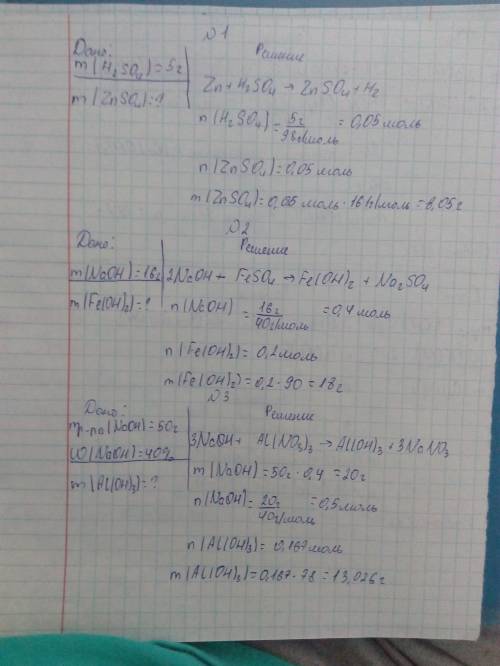 №1
Дано: Решение
m(H₂SO₄)=5г
m(ZnSO₄)=?
Zn+H₂SO₄→ZnSO₄+H₂
n(H₂SO₄)=5г/98г/моль=0,05моль
n(ZnSO₄)=0,05моль
m(ZnSO₄)=0,05 моль·161г/моль=8,05г
№2
Дано: Решение
m(NaOH)=16г
m(Fe(OH)₂)=?
2NaOH+FeSO₄→Fe(OH)₂+Na₂SO₄
n(NaOH)=16г/40г/моль=0,4моль
n(Fe(OH)₂)=0,2моль
m(Fe(OH)₂)=0,2·90=18г
№3
Дано: Решение
mр-ра(NaOH)=50г
ω(NaOH)=40%
m(Al(OH)₃)=?
3NaOH+Al(NO₃)₃→Al(OH)₃+3NaNO₃
m(NaOH)=50г·0,4=20г
n(NaOH)=20г/40г/моль=0,5моль
n(Al(OH)₃)=0,167моль
m(Al(OH)₃)=0,167·78=13,026г